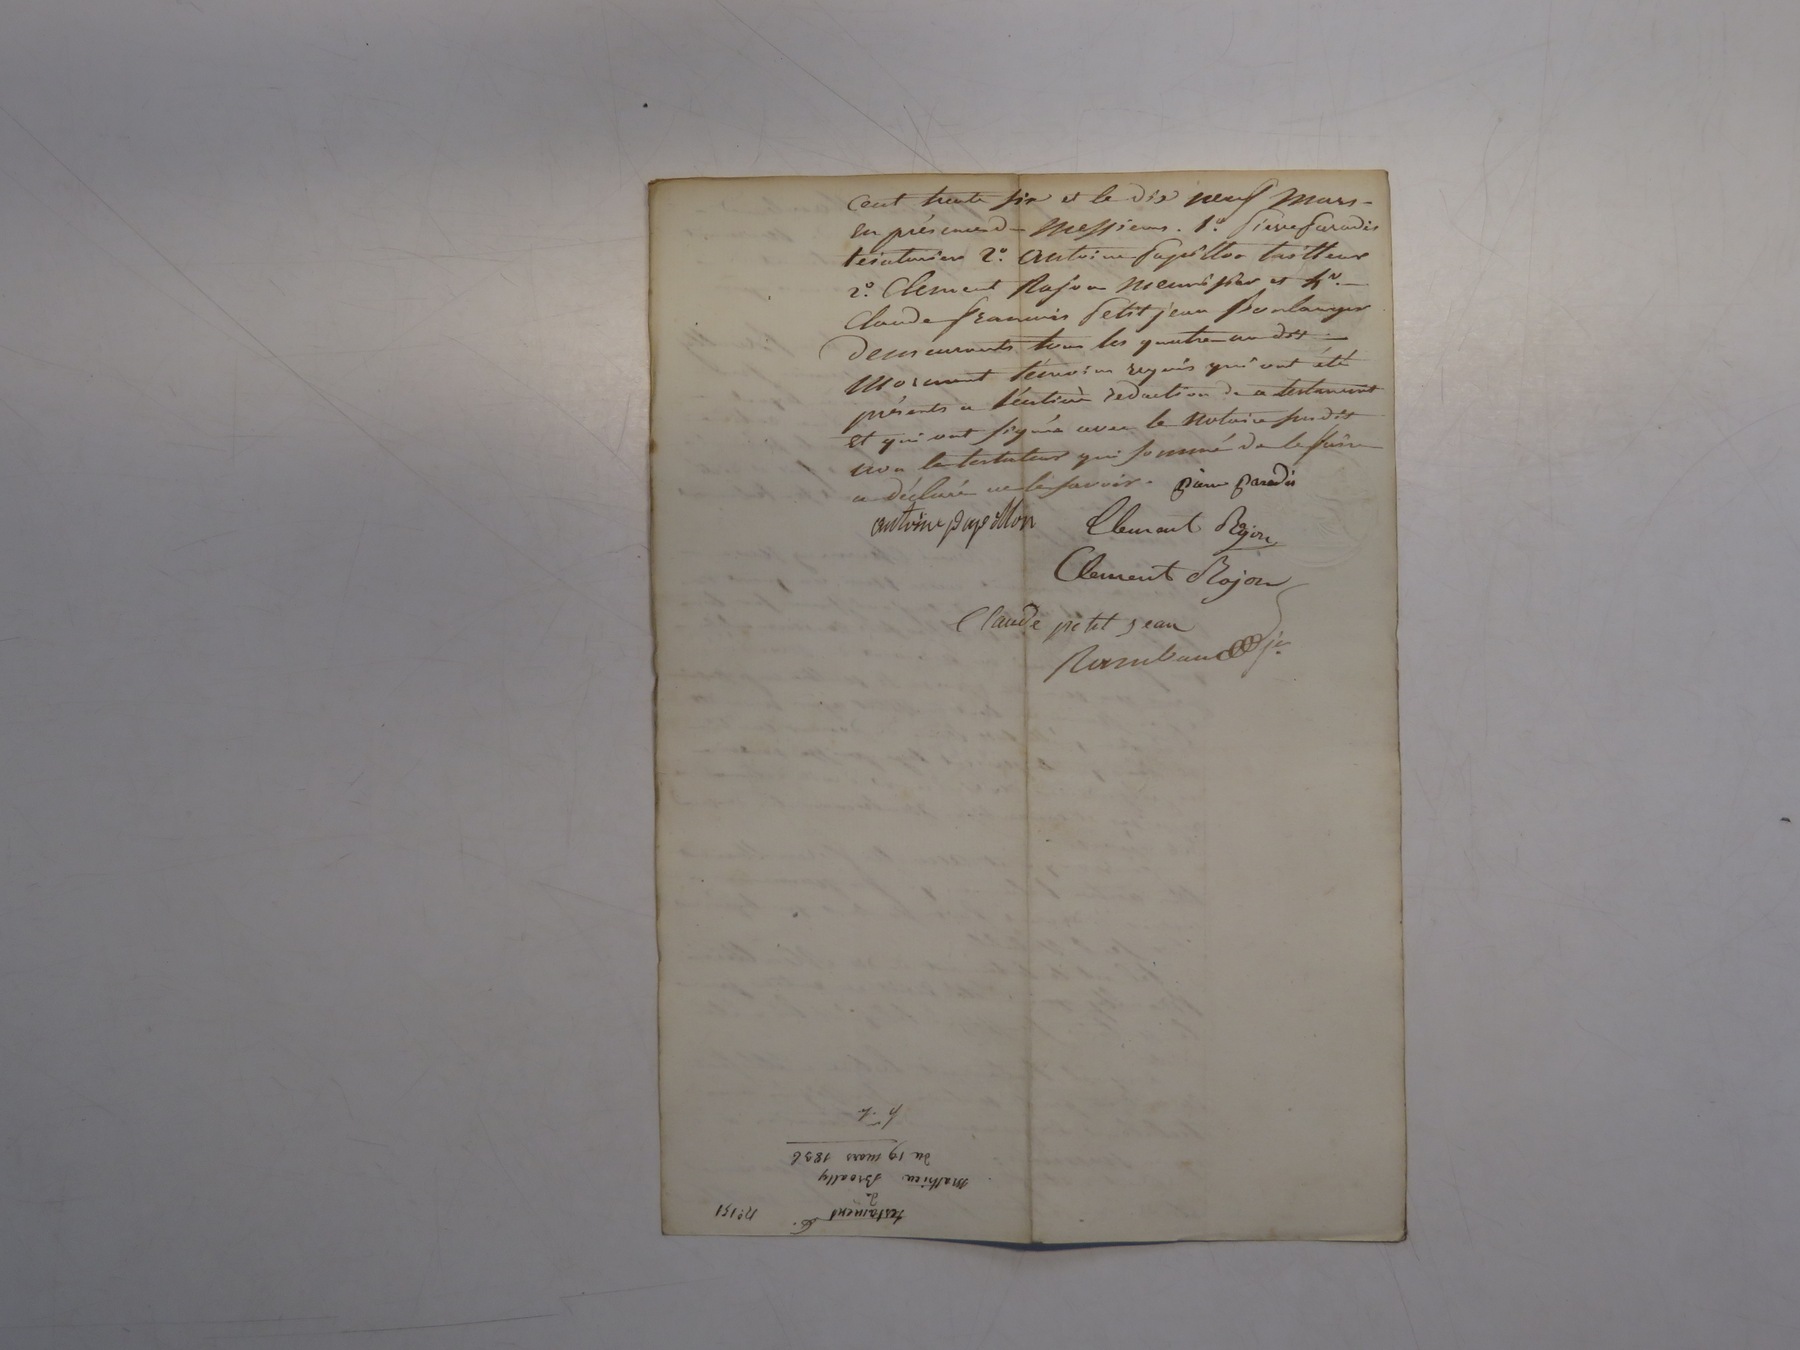 Cent trente six et le dix neuf Mars
En présence de Messieurs. 1º. Pierre Paradis
teinturier 2º. Antoine Papillon tailleur
2º. Clement Rajon menuisier et 4º.
Claude francois Petit jean Boulanger
demeurants tous les quatre au dit
Morment témoins requis qui ont été
présents a l'entière rédaction de ce testament
et qui ont signé avec le Notaire susdit
non le testateur qui sommé de le faire
a déclaré ne le savoir. pierre paradis
antoine papillon Clement Rajon
Clement Rajon
Claude petit jean
Rambaud
Nº 151
testament
de
Mathieu Broally
du 19 mars 1836